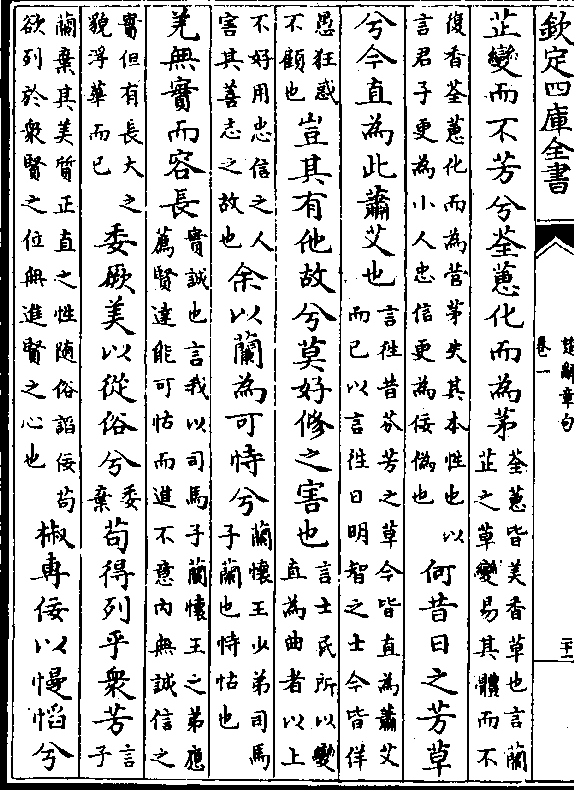 欽定四庫全書
楚辭章句
卷一
二十二
芷變而不芳兮荃蕙化而為茅荃蕙皆美香草也言蘭芷之草變易其體而不
復香荃蕙化而為菅茅失其本性也以言君子更為小人忠信更為佞偽也何昔日之芳草
兮今直為此蕭艾也言往昔芬芳之草今皆直為蕭艾而已以言往日明智之士今皆佯
愚狂惑不顧也豈其有他故兮莫好修之害也言士民所以變直為曲者以上
不好用忠信之人害其善志之故也余以蘭為可恃兮蘭懷王少弟司馬子蘭也恃怙也
羌無實而容長實誠也言我以司馬子蘭懷王之弟應薦賢達能可怙而進不意內無誠信之
實但有長大之貌浮華而已委厥美以從俗兮委棄苟得列乎衆芳言子
蘭棄其美質正直之性隨俗諂佞苟欲列於衆賢之位無進賢之心也椒專佞以慢慆兮